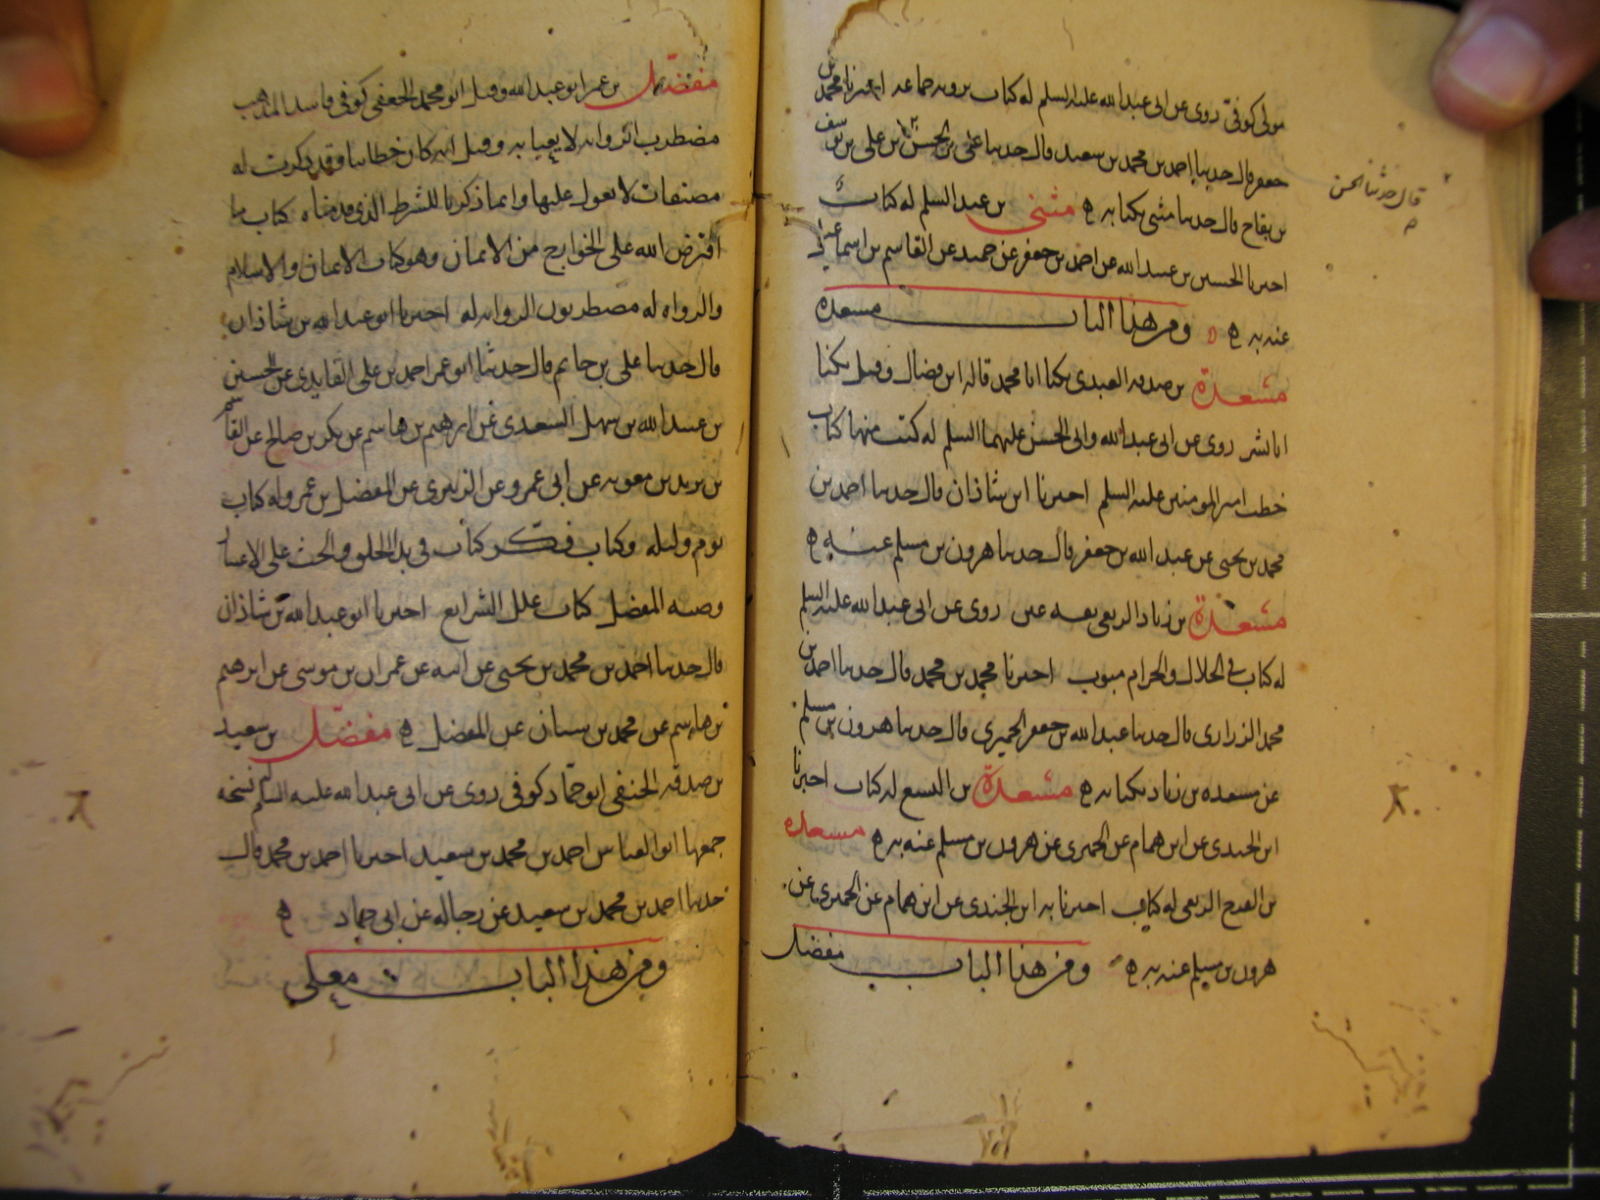 مولى كوفي روى عن ابي عبدالله عليه السلم له كتاب يرويه جماعة اخبرنا محمد بن
جعفر قال حدثنا احمد بن محمد بن سعيد قال حدثنا علي بن الحسن بن علي بن يوسف
قال حدثنا الحسن
بن بقاح قال حدثنا مثنى بكتابه مثنى بن عبد السلم له كتاب
اخبرنا الحسين بن عبيد الله عن احمد بن جعفر عن حميد عن القاسم بن اسماعيل
عنه به ومن هذا الباب مسعده
مسعدة بن صدقه العبدي يكنا ابا محمد قاله ابن فضال وقيل يكنا
ابا بشر روى عن ابي عبد الله وابي الحسن عليهما السلم له كتب منها كتاب
خطب امير المومنين عليه السلم اخبرنا ابن شاذان قال حدثنا احمد بن
محمد بن يحيى عن عبد الله بن جعفر قال حدثنا هرون بن مسلم عنه
مسعدة بن زياد الربعي ثقه عين روى عن ابي عبد الله عليه السلم
له كتاب في الحلال والحرام مبوب اخبرنا محمد بن محمد قال حدثنا احمد بن
محمد الزراري قال حدثنا عبد الله بن جعفر الحميري قال حدثنا هرون بن مسلم
عن مسعده بن زياد بكتابه مسعدة بن اليسع له كتاب اخبرنا
ابن الجندي عن ابن همام عن الحميري عن هرون بن مسلم عنه به مسعده
بن الفرج الربعي له كتاب اخبرنا به ابن الجندي عن ابن همام عن الحميري عن
هرون بن مسلم عنه به ومن هذا الباب مفضل
مفضل بن عمر ابو عبد الله وقيل ابو محمد الجعفي كوفي فاسد المذهب
مضطرب الروايه لا يعبا به وقيل انه كان خطابيا وقد ذكرت له
مصنفات لا يعول عليها وانما ذكرنا للشرط الذي قدمناه كتاب ما
افترض الله على الجوارح من الايمان وهو كتاب الايمان والاسلام
والرواه له مضطربون الروايه له اخبرنا ابو عبد الله بن شاذان
قال حدثنا علي بن حاتم قال حدثنا ابو عمر احمد بن علي الفايدي عن الحسين
بن عبيد الله بن سهل السعدي عن ابرهيم بن هاسم عن بكر بن صالح عن القاسم
بن بريد بن معويه عن ابي عمرو عن الزبيري عن المفضل بن عمر وله كتاب
يوم وليله وكتاب فكر كتاب في بدا الخلق والحث على الاعتبار
وصيه المفضل كتاب علل الشرايع اخبرنا ابو عبد الله بن شاذان
قال حدثنا احمد بن محمد بن يحيى عن ابيه عن عمران بن موسى عن ابرهيم
بن هاسم عن محمد بن سنان عن المفضل مفضل بن سعيد
بن صدقه الحنفي ابو حماد كوفي روى عن ابي عبد الله عليه السلم نسخه
جمعها ابو العباس احمد بن محمد بن سعيد اخبرنا احمد بن محمد قال
حدثنا احمد بن محمد بن سعيد عن رجاله عن ابي حماد
ومن هذا الباب معلى